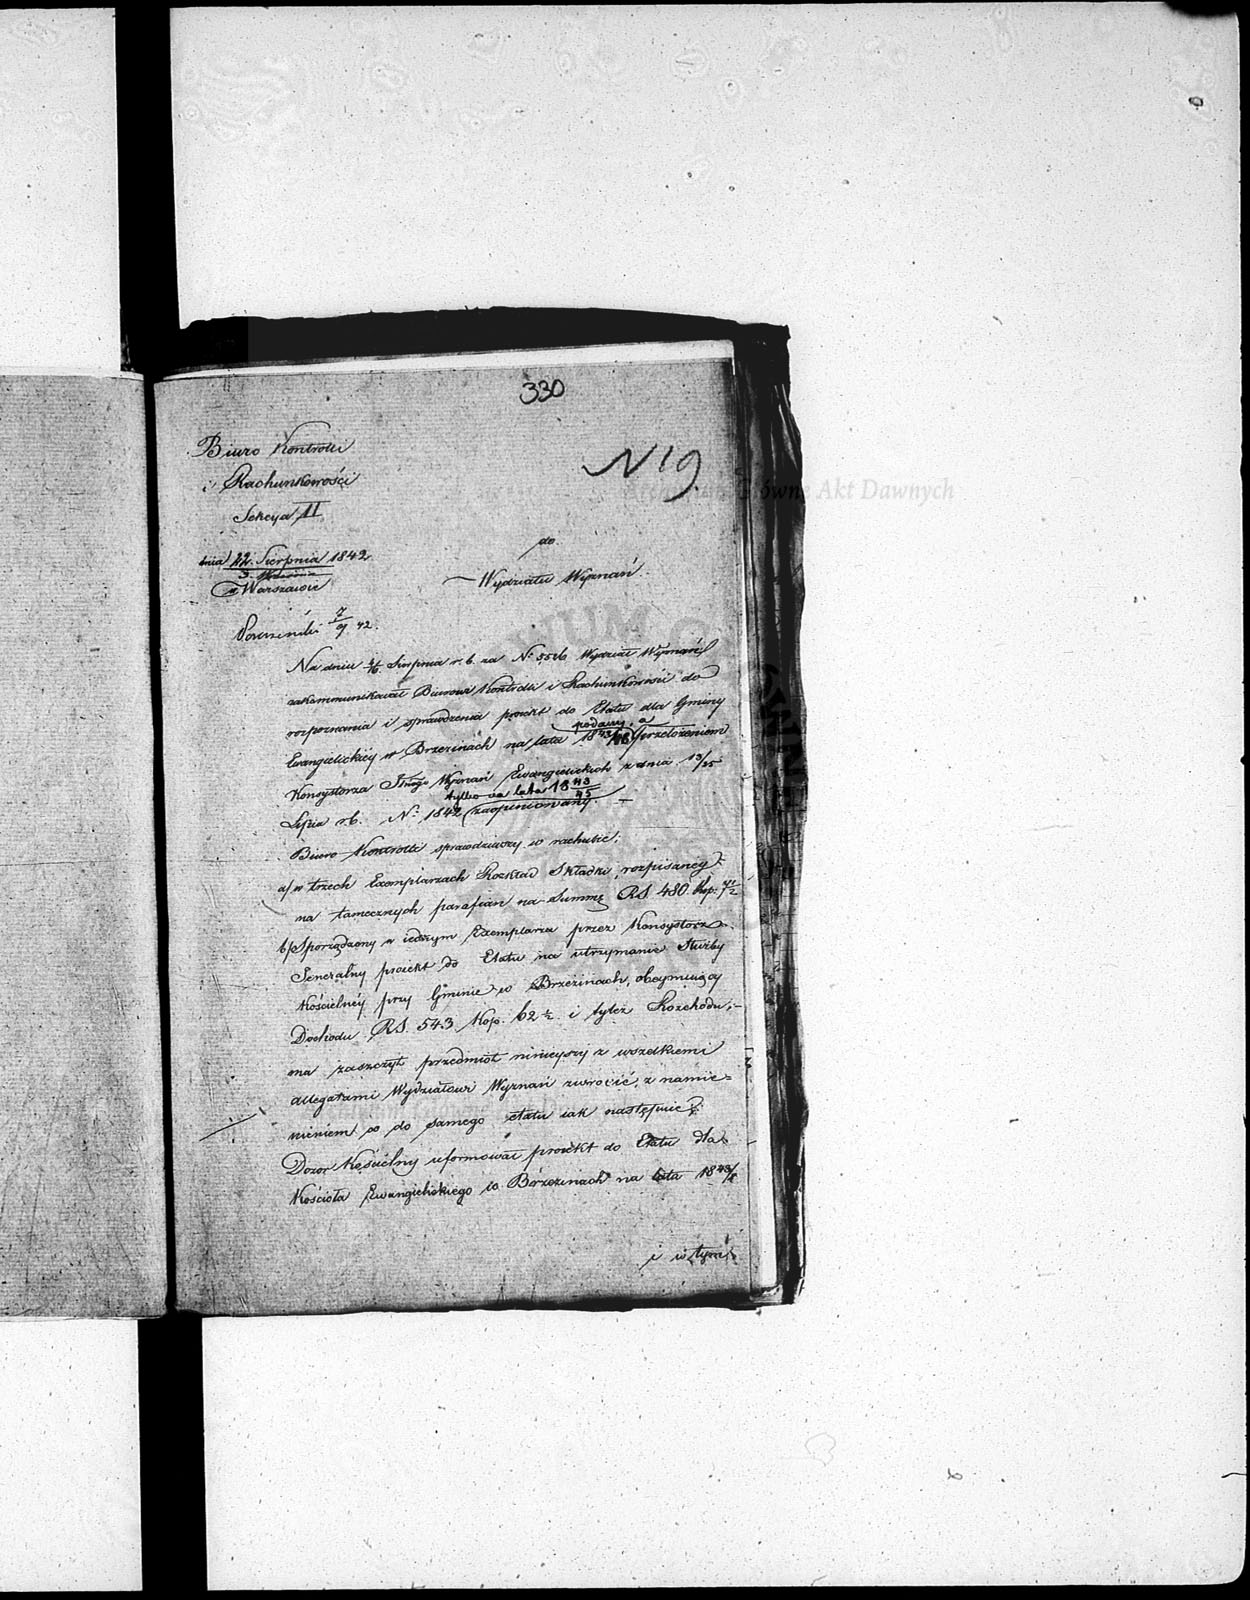 330
Biuro Kontrolli
i Rachunkowości
Sekcya II
N 19.
dnia 22. Sierpnia 1842
3. Września
w Warszawie
do
Wydziału Wyznań.
7/9 42.
Na dniu Sierpnia r. b. za N: Wydział Wyznań
zakommunikował Biurowi Kontrolli i Rachunkowości do
rozpoznania i sprawdzenia proiekt do Etatu dla Gminy
podany, a
Ewangielickiéy w Brzezinach na lata 1843/48 przełożeniem
Konsystorza Wyznań Ewangielickich z dnia 13/25
tylko na lata 18 43/45
Lipca r. b. N: 1842 zaopiniowany. –
Biuro Kontrolli sprawdziwszy w rachubie;
a/ w trzech Exemplarzach Rozkład Składki, rozpisaney
na tamecznych parafian na Summę RS. 480 kop.
b/ Sporządzony w iednym Exemplarzu przez Konsystorz
Jeneralny proiekt do Etatu na utrzymanie Służby
Kościelnéy przy Gminie w Brzezinach, obeymuiący
Dochodu RS. 543 kop. 62 ½ i tyleż Rozchodu; –
ma zaszczyt przedmiot ninieyszy z wszelkiemi
allegatami Wydziałowi Wyznań zwrócić, z namie=
nieniem co do samego etatu iak następuie:
Dozór Kościelny uformował proiekt do Etatu dla
Kościoła Ewangielickiego w Brzezinach na lata 1843/8
i w tym
Archiwum Główne Akt Dawnych